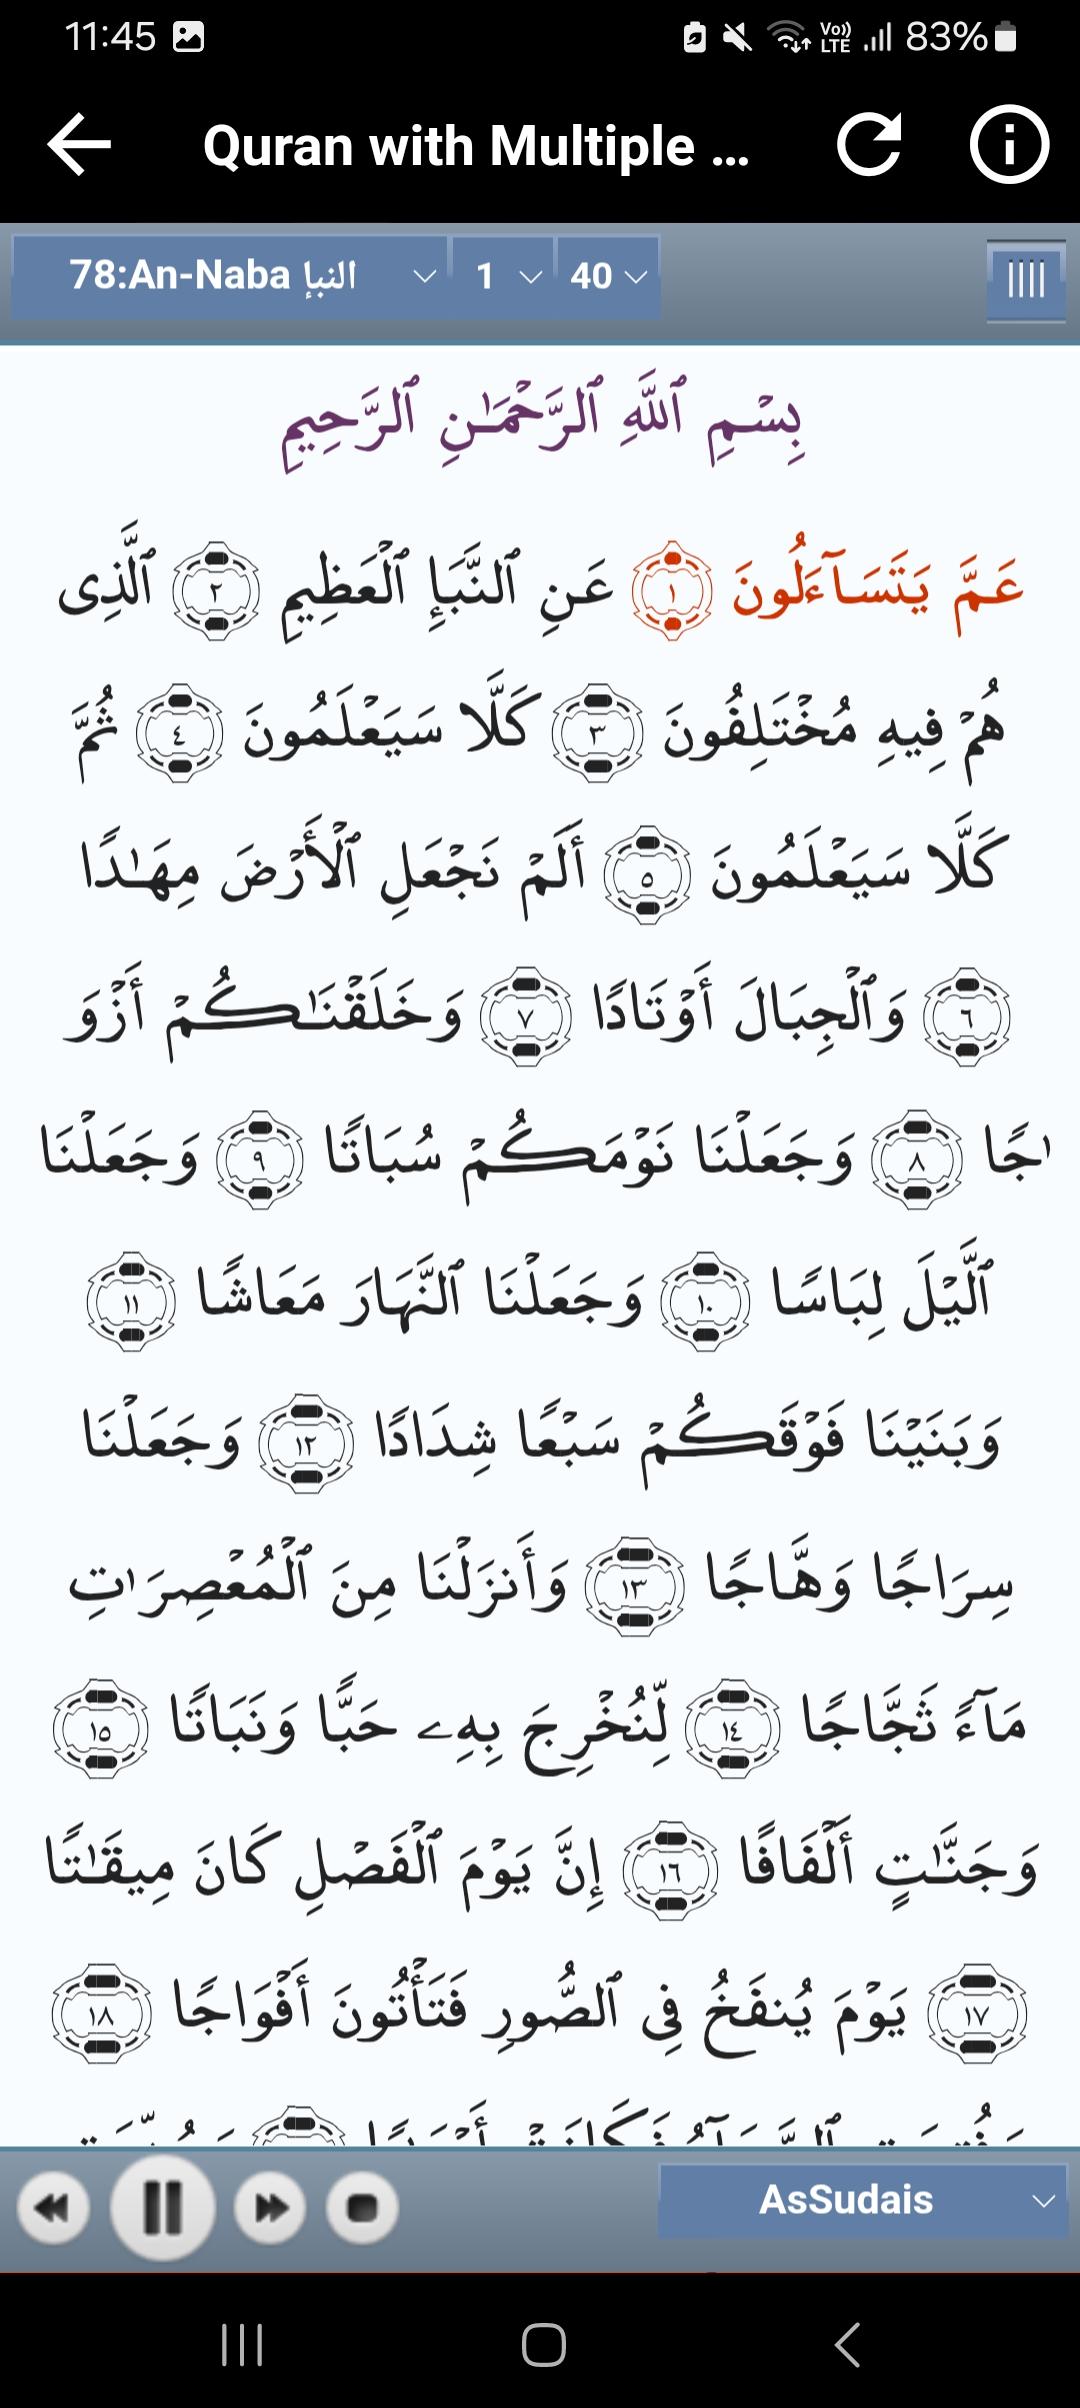 11:45
Vo)) LTE 83%
Quran with Multiple ...
78:An-Naba النبإ 1 40
بِسْمِ ٱللَّهِ ٱلرَّحْمَـٰنِ ٱلرَّحِيمِ
عَمَّ يَتَسَآءَلُونَ ١ عَنِ ٱلنَّبَإِ ٱلْعَظِيمِ ٢ ٱلَّذِى
هُمْ فِيهِ مُخْتَلِفُونَ ٣ كَلَّا سَيَعْلَمُونَ ٤ ثُمَّ
كَلَّا سَيَعْلَمُونَ ٥ أَلَمْ نَجْعَلِ ٱلْأَرْضَ مِهَـٰدًا
٦ وَٱلْجِبَالَ أَوْتَادًا ٧ وَخَلَقْنَـٰكُمْ أَزْوَ
ٰجًا ٨ وَجَعَلْنَا نَوْمَكُمْ سُبَاتًا ٩ وَجَعَلْنَا
ٱلَّيْلَ لِبَاسًا ١٠ وَجَعَلْنَا ٱلنَّهَارَ مَعَاشًا ١١
وَبَنَيْنَا فَوْقَكُمْ سَبْعًا شِدَادًا ١٢ وَجَعَلْنَا
سِرَاجًا وَهَّاجًا ١٣ وَأَنزَلْنَا مِنَ ٱلْمُعْصِرَٰتِ
مَآءً ثَجَّاجًا ١٤ لِّنُخْرِجَ بِهِۦ حَبًّا وَنَبَاتًا ١٥
وَجَنَّـٰتٍ أَلْفَافًا ١٦ إِنَّ يَوْمَ ٱلْفَصْلِ كَانَ مِيقَـٰتًا
١٧ يَوْمَ يُنفَخُ فِى ٱلصُّورِ فَتَأْتُونَ أَفْوَاجًا ١٨
AsSudais